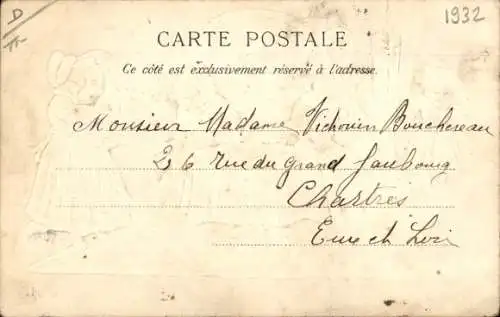 D
1932
CARTE POSTALE
Ce côté est exclusivement réservé à l'adresse.
Monsieur Madame Vichouin Bouchereau
26 rue du Grand Faubourg
Chartres
Eure et Loir